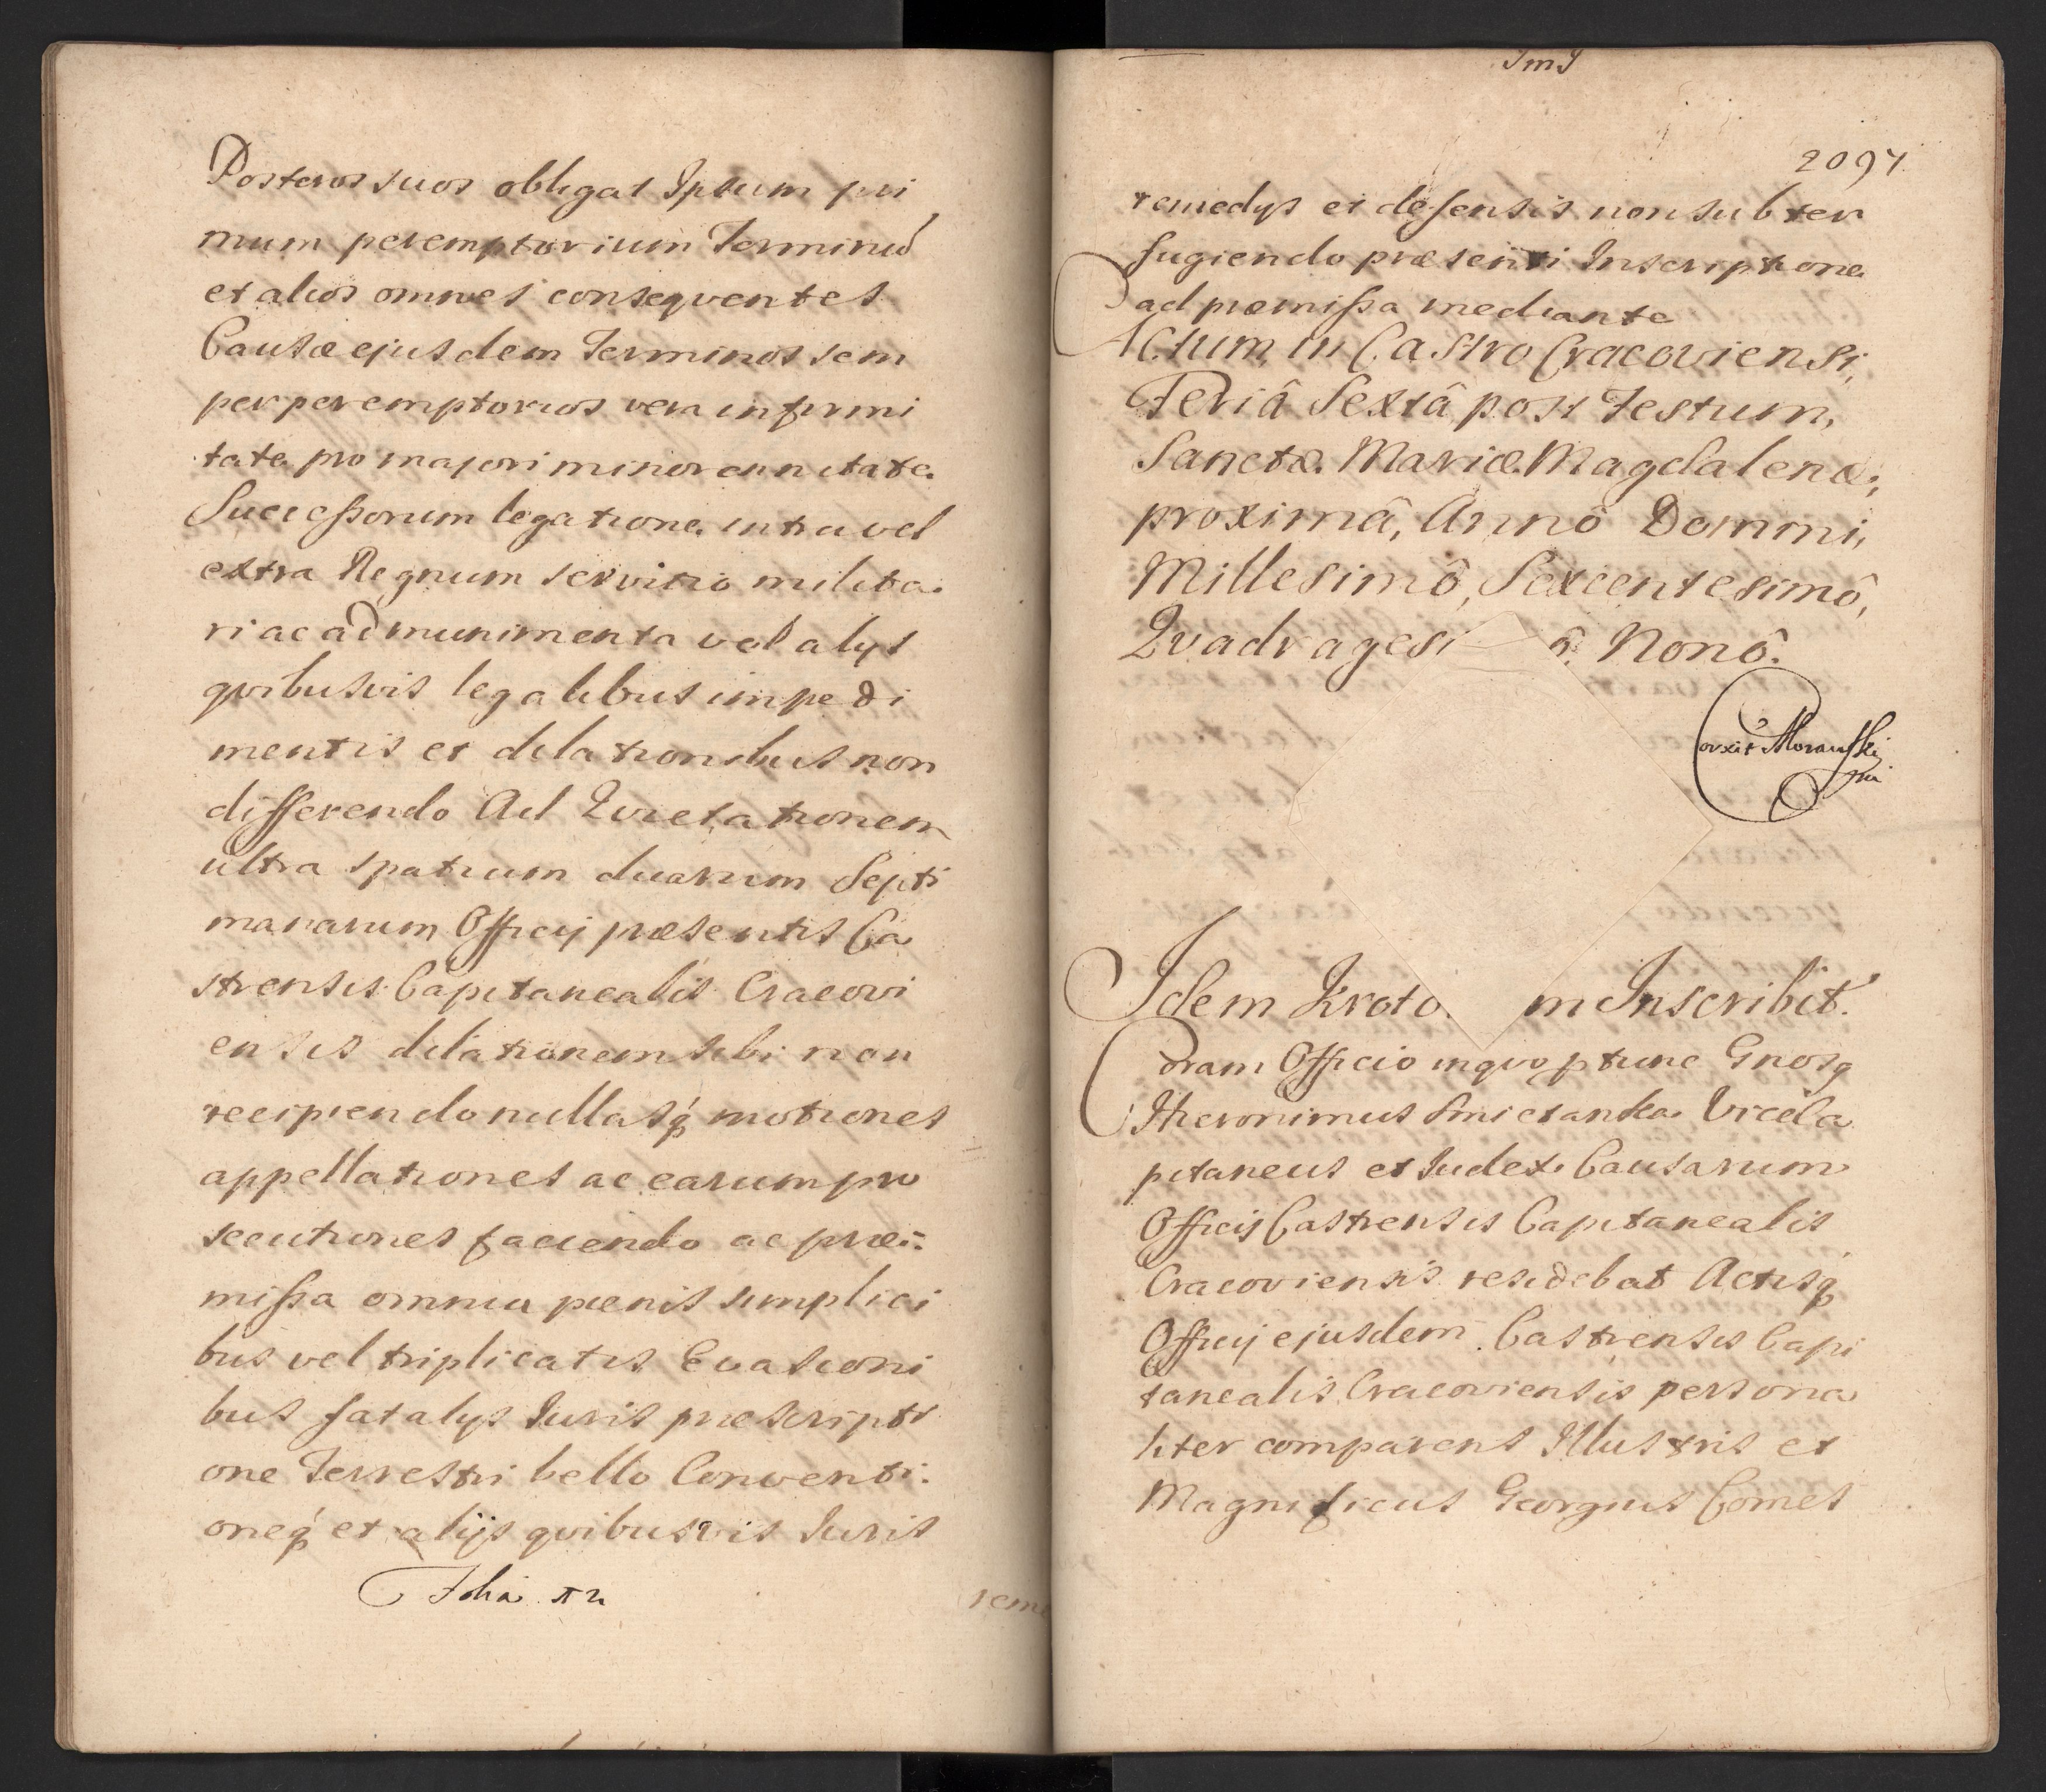 Posteros suos obligat Ipsum pri
mum peremptorium Terminũ
et alios omnes conseqventes
Causæ ejusdem Terminos sem
per peremptorios vera infirmi
tate pro majori minorennitate
Successorum legatione intra vel
extra Regnum servitio milita
ri ac ad munimenta vel alys
qvibusvis legalibus impedi
mentis et dilationibus non
differendo Ad Qvietationem
ultra spatium duarum Septi
manarum Officij præsentis Ca
strensis Capitanealis Cracovi
ensis dilationem sibi non
recipiendo nullasq́ motiones
appellationes ac earum pro
secutiones faciendo ac præ:
missa omnia pœnis simplici
bus vel triplicatis Evasioni
bus fatalys Juris præscripti
one Terrestri bello Conventi:
oneq́ et alijs qvibusvis Juris
Folia
reme
2097
remedys et defensis non subter
fugiendo præsenti Inscriptione
ad præmissa mediante
Actum in Castro Cracoviensi,
Feriâ Sextâ post Festum,
Sanctæ Mariæ Magdalenæ,
proximâ, Annô Domini,
Millesimô, Sexcentesimô,
Qvadragesi ô Nonô.
Corxit Morawski
mp
Idem Kroto. m Inscribit.
Coram Officio inqvo ptunc Gnosq
Hieronimus Smietanka ViceCa
pitaneus et Judex Causarum
Officij Castrensis Capitanealis
Cracoviensis residebat Actisq́
Officij ejusdem Castrensis Capi
tanealis Cracoviensis persona
liter comparens Illustris et
Magnificus Georgius Comes